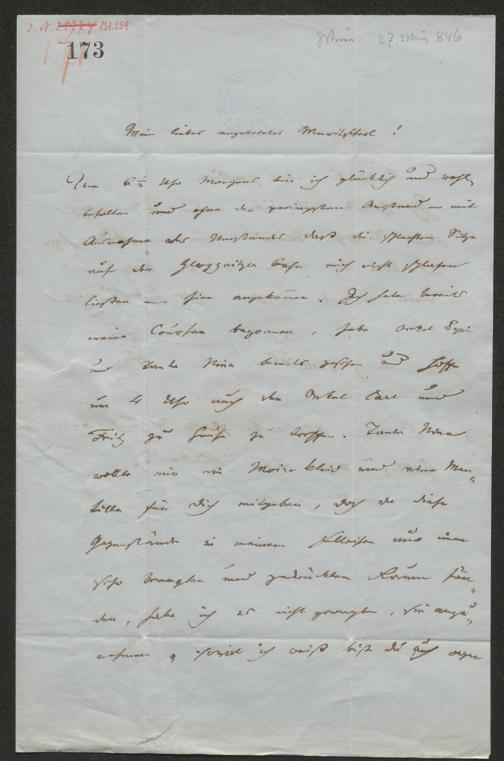 I. N. 131.239
173
27. März 846
Mein liebes angebetetes !
Um 6 ½ Uhr Morgens bin ich glücklich und wohl
behalten und ohne den geringsten Anstand – mit
Ausnahme des Umstandes daß die schlechten Sitze
auf der Gloggnitzer Bahn mich nicht schlafen
ließen – hier angekommen. Ich habe bereits
meine Coursen begonnen, habe Onkel
und Tante Nina bereits gesehen und hoffe
um 4 Uhr auch den Onkel Carl und
Fritz zu Hause zu treffen. Tante Nina
wollte mir ein Moire Kleid und eine Man-
tille für Dich mitgeben, doch da diese
Gegenstände in meinem Felleisen nur einen
sehr engen und gedrückten Raum fän-
den, habe ich es nicht gewagt, sie anzu-
nehmen, soviel ich weiß bist Du auch